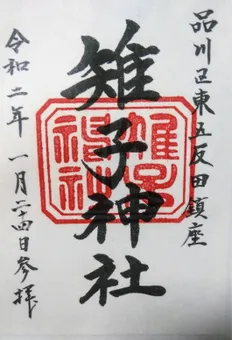 品川区東五反田鎮座
雉子神社
雉子
神社
令和二年 一月二十四日参拝